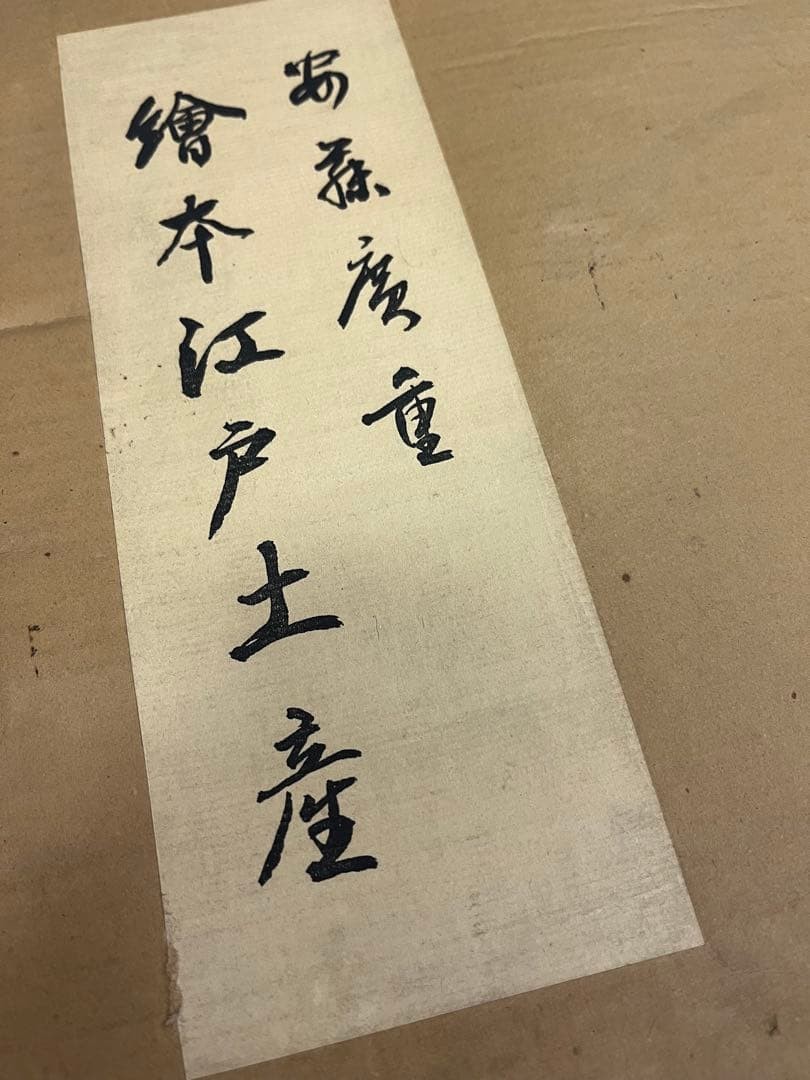 安藤廣重
繪本江戸土産